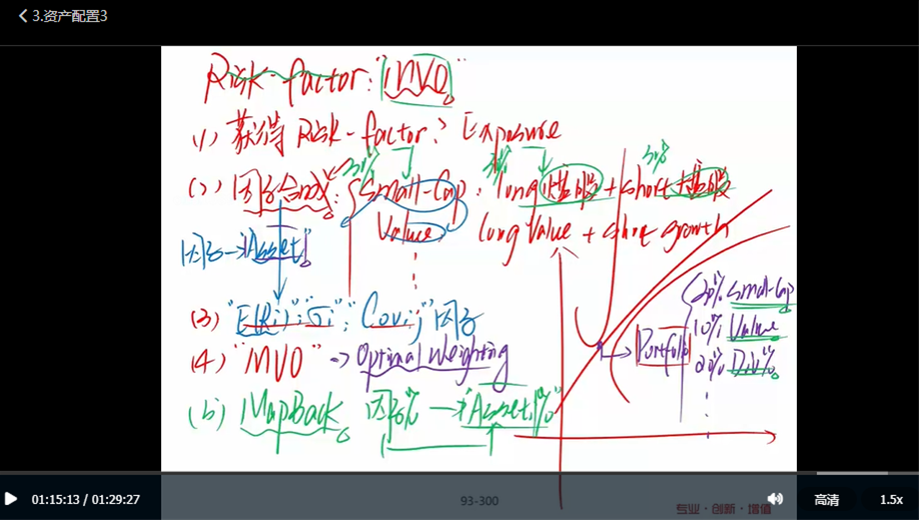 3.资产配置3
Risk-factor: "MVO"
(1) 获得 Risk-factor? Exposure
(2) 因子合成: Small-Cap: long 小盘股 + short 大盘股
Value: long Value + short growth
因子→"Asset"
(3) "E(Ri)"; "σi"; "Covi,j" 因子
(20% Small-Cap
(4) "MVO" → Optimal Weighting
Portfolio
10% Value
20% Div%
(5) MapBack 因子% → "Asset, %"
01:15:13 / 01:29:27
93-300
专业·创新·增值
高清
1.5x